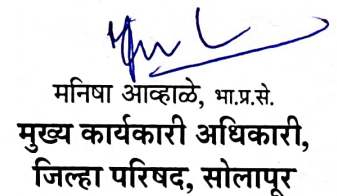 मनिषा आव्हाळे, भा.प्र.से.
मुख्य कार्यकारी अधिकारी,
जिल्हा परिषद, सोलापूर